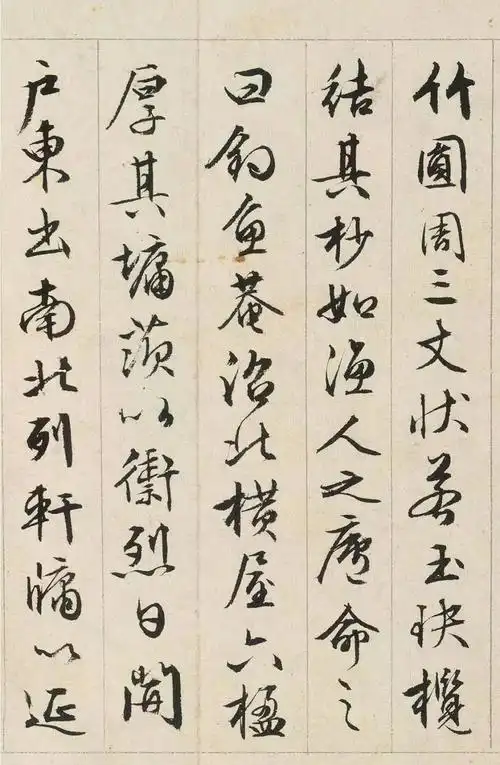 竹圓周三丈狀若玉玦攬
結其杪如漁人之廬命之
曰釣魚菴沼北橫屋六楹
厚其墉茨以禦烈日開
戶東出南北列軒牖以延